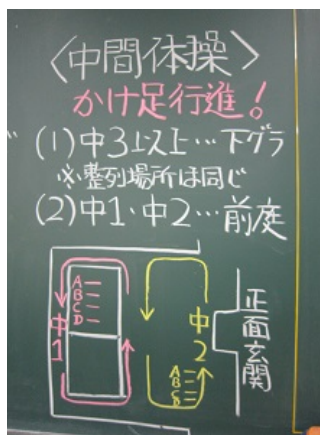 〈中間体操〉
かけ足行進!
(1)中3以上…下グラ
※整列場所は同じ
(2)中1・中2…前庭
A
B
C
D
中1
中2
A
B
C
D
正面玄関